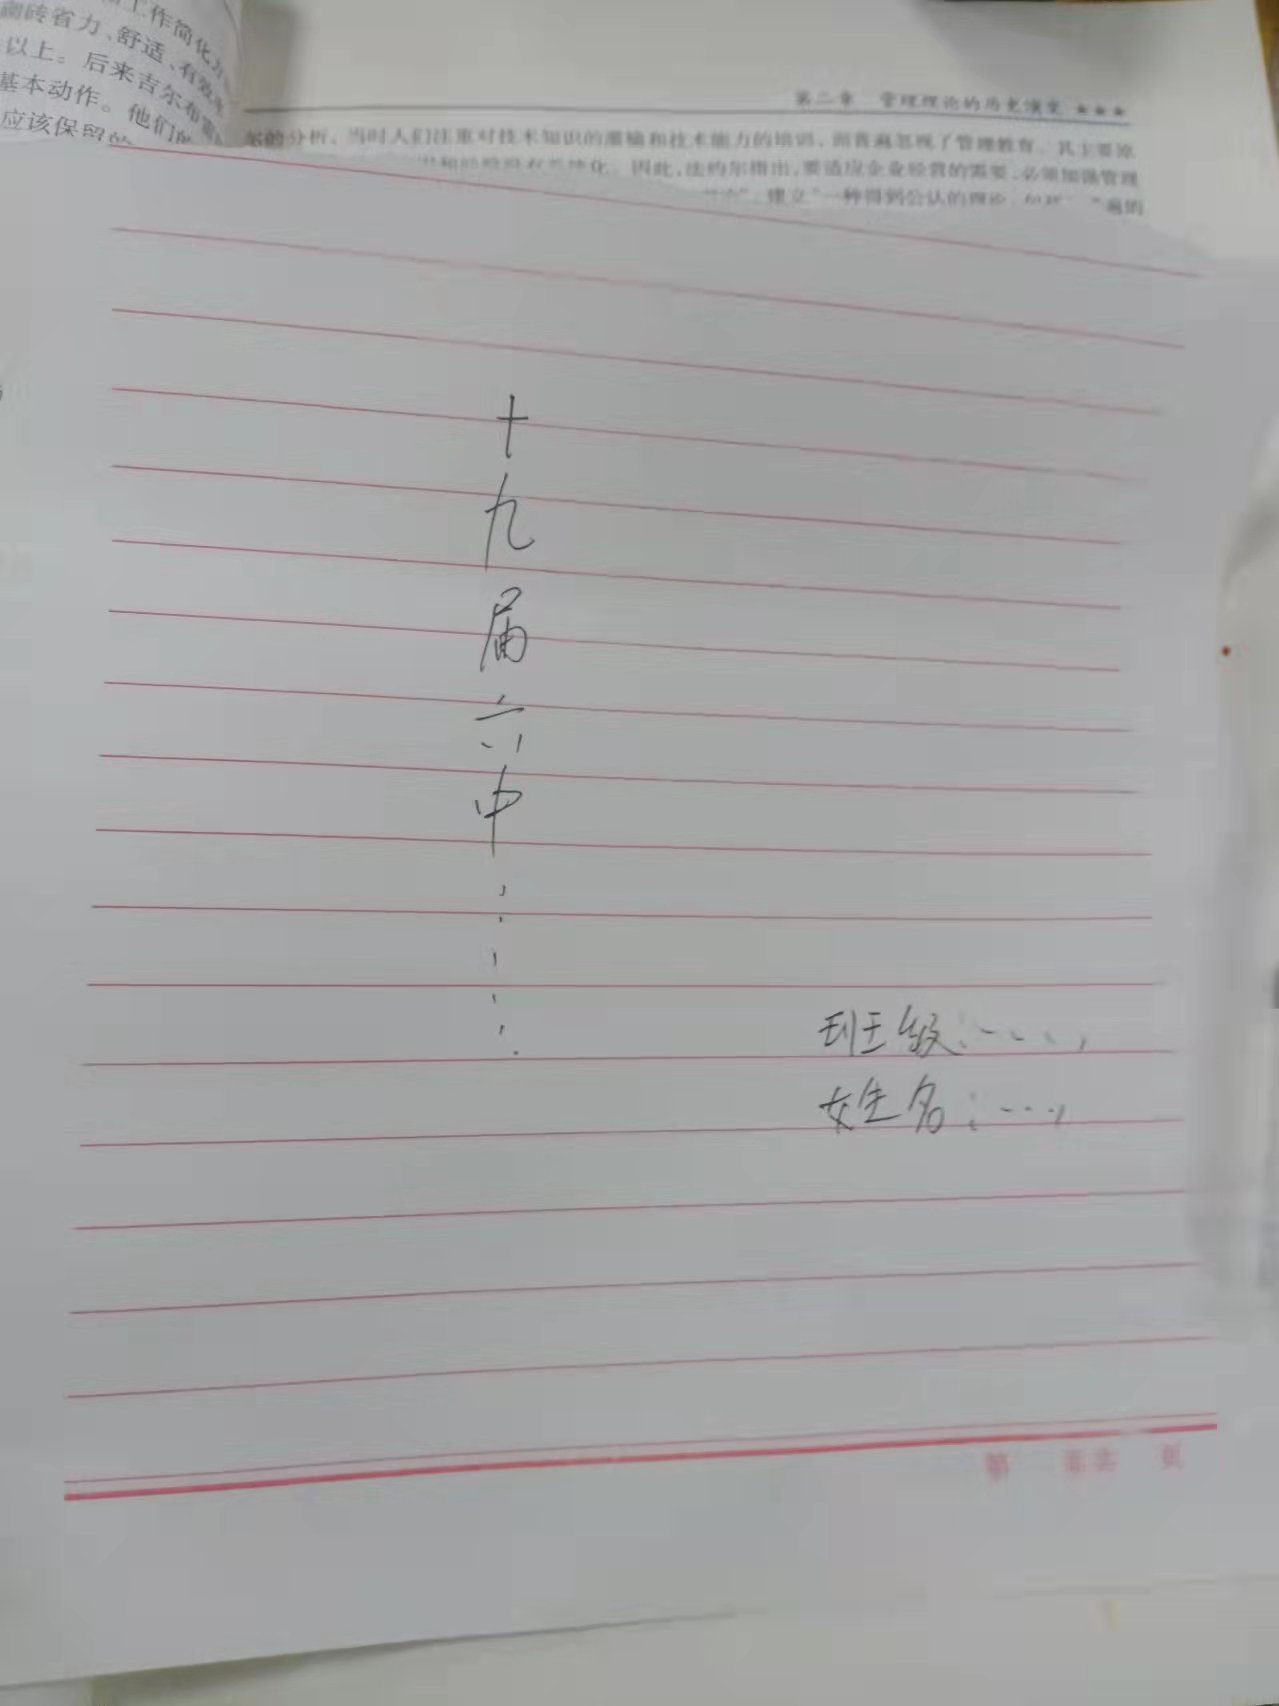 工作简化方
砌砖省力、舒适、有效率
以上。后来吉尔布雷
基本动作。他们的
应该保留的
第二章 管理理论的历史演变 ★★★
的分析。当时人们注重对技术知识的灌输和技术能力的培训，而普遍忽视了管理教育。其主要原
因此，法约尔指出，要适应企业经营的需要，必须加强管理
建立“一种得到公认的理论
十
九
届
六
中
⋮
⋮
班级：……
姓名：……
第 页